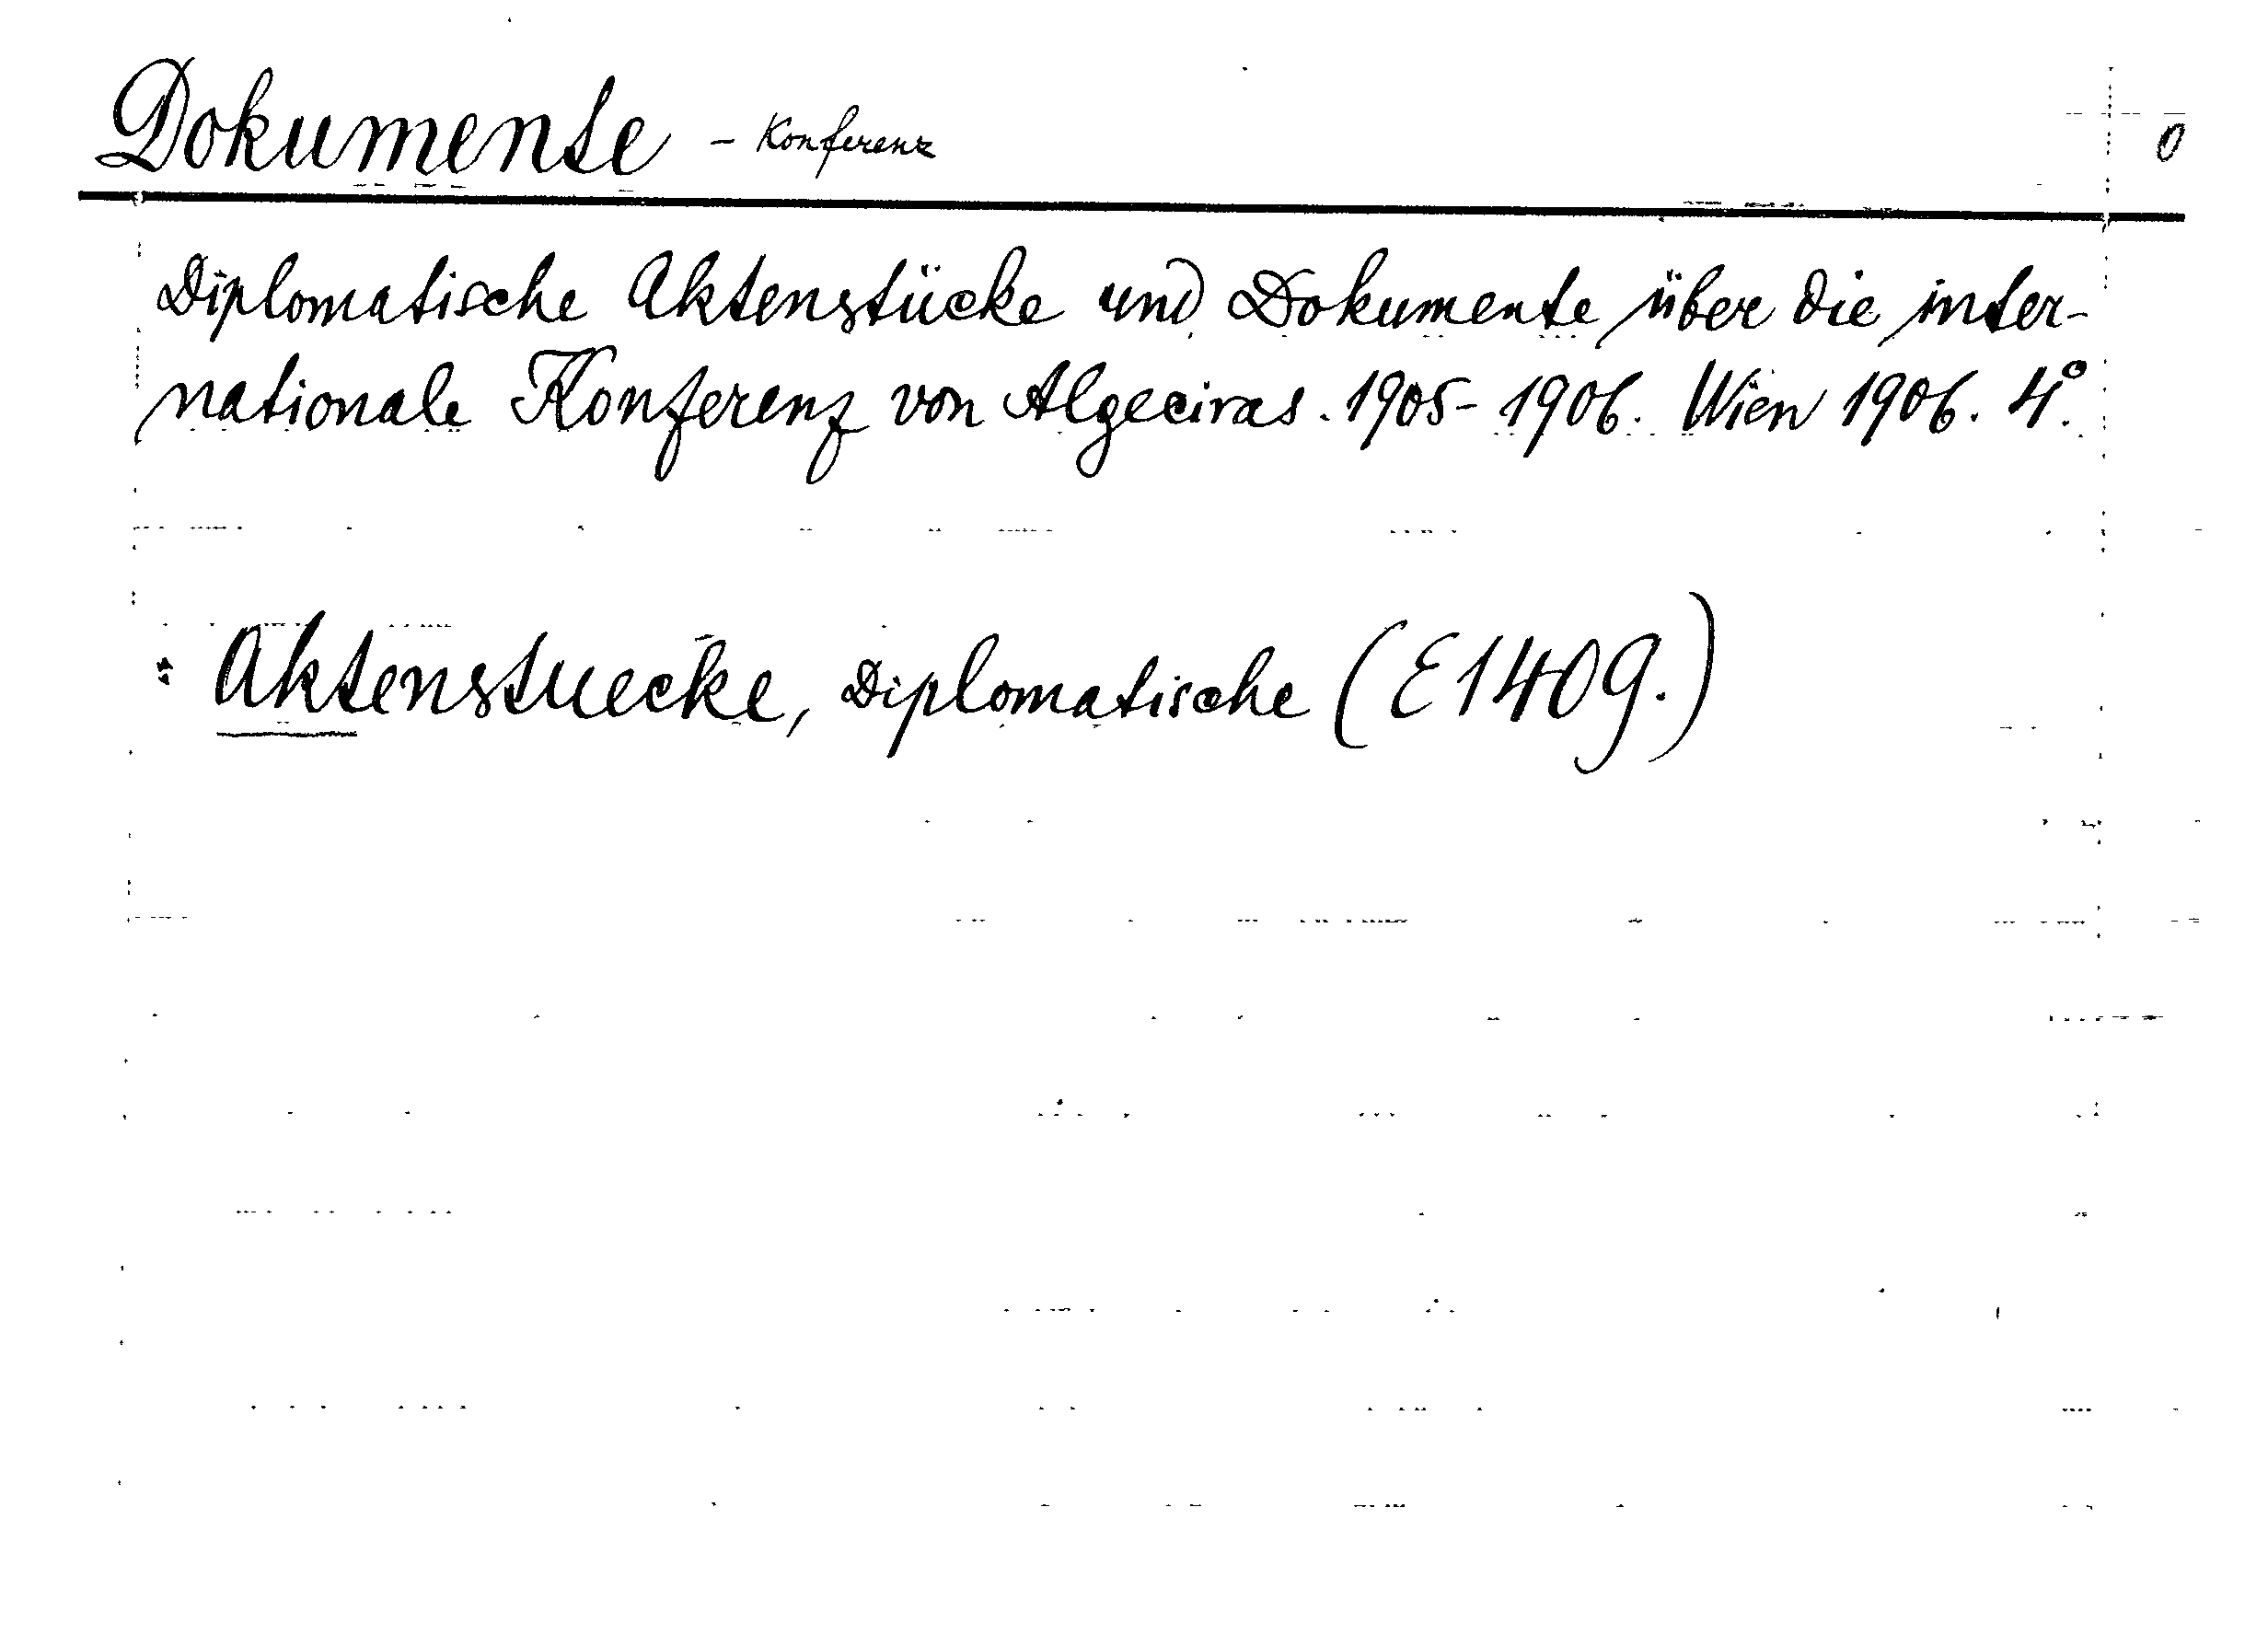 Dokumente - Konferenz 0
Diplomatische Aktenstücke und Dokumente über die inter-
nationale Konferenz von Algeciras. 1905-1906. Wien 1906. 4°.
: Aktenstuecke, Diplomatische (E1409.)